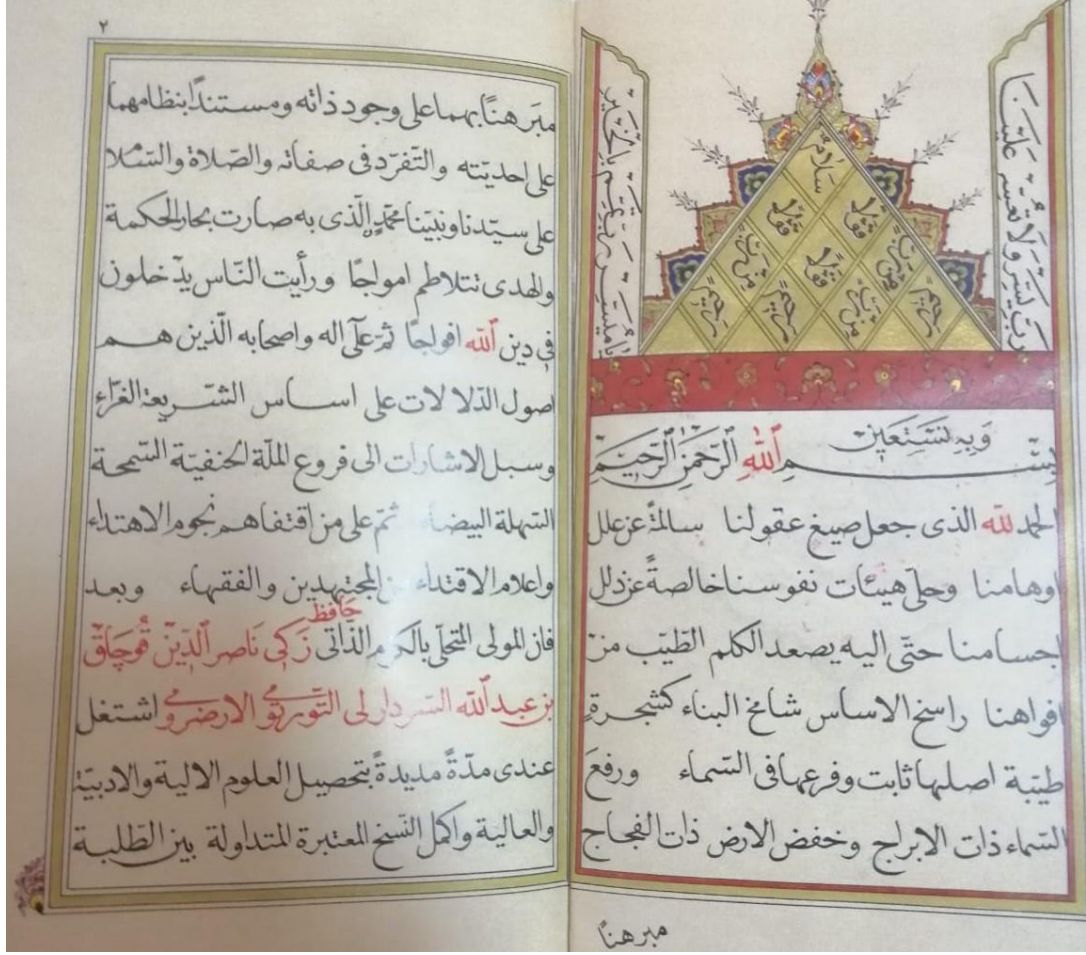 رب يسر ولا تعسر علينا
يا ميسر رب تمم بالخير
سلام
قولا قولا
من رب قولا من رب
رحيم من رب رحيم رحيم
وَبِهِ نَسْتَعِين
بسم الله الرحمن الرحيم
الحمد لله الذى جعل صيغ عقولنا سالمةً عن علل
اوهامنا وحلّى هيئات نفوسنا خالصةً عن دلل
اجسامنا حتّى اليه يصعد الكلم الطيّب من
افواهنا راسخ الاساس شامخ البناء كشجرةٍ
طيّبة اصلها ثابت وفرعها فى السّماء ورفعَ
السّماء ذات الابراج وخفض الارض ذات الفجاج
مبرهنًا
٢
مبَرهنًا بهما على وجود ذاته ومستنداً بنظامهما
على احديّته والتّفرّد فى صفاته والصّلاة والسّلا
على سيّدنا ونبيّنا محمّدٍ الّذى به صارت بحار الحكمة
والهدى تتلاطم امواجًا ورأيت النّاس يدخلون
فى دين الله افواجًا ثمّ على آله واصحابه الّذين هم
اصول الدّلالات على اساس الشّريعة الغرّاء
وسبل الاشارات الى فروع الملّة الحنفيّة السّمحة
السّهلة البيضاء ثمّ على من اقتفاهم نجوم الاهتداء
واعلام الاقتداء من المجتهدين والفقهاء وبعد
حافظ
فان المولى المتحلّى بالكرم الذّاتى زَكى نَاصر الدّين قُوچَاق
بن عبد الله السّردارلى التّورتوى الارضرومى اشتغل
عندى مدّةً مديدةً بتحصيل العلوم الالية والادبيّة
والعالية واكمل النّسخ المعتبرة المتداولة بين الطّلبة